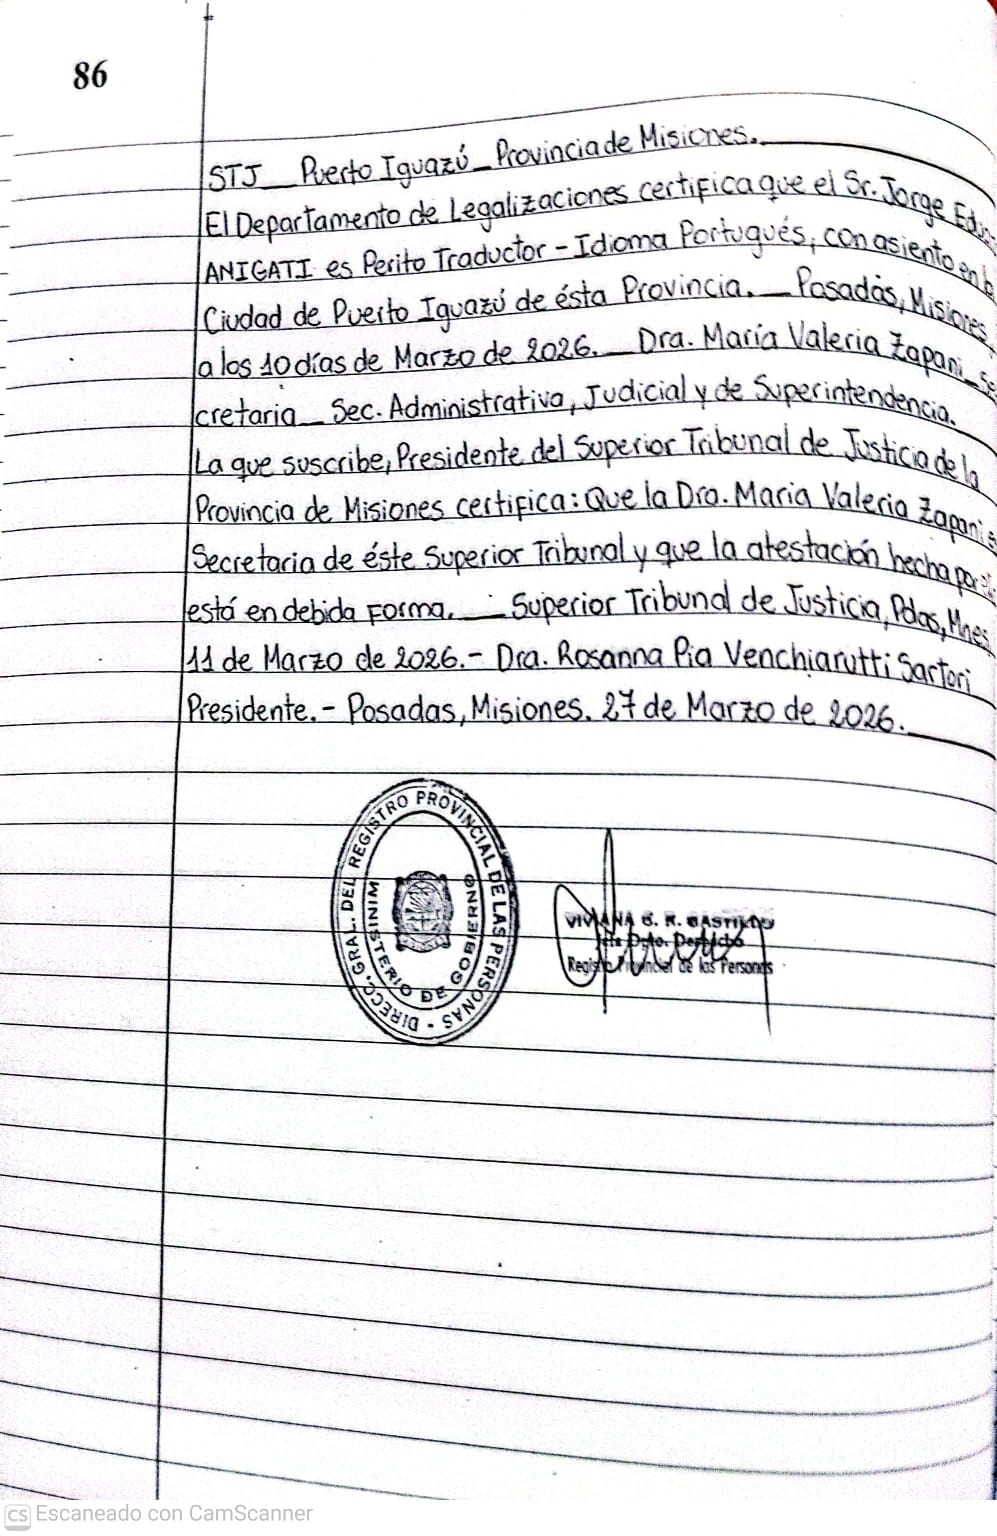 86
STJ__Puerto Iguazú_Provincia de Misiones.
El Departamento de Legalizaciones certifica que el Sr. Jorge
ANIGATI es Perito Traductor - Idioma Portugués, con asiento en
Ciudad de Puerto Iguazú de ésta Provincia.__Posadas, Misiones,
a los 10 días de Marzo de 2026.__Dra. María Valeria Zapani_Se
cretaria__Sec. Administrativa, Judicial y de Superintendencia.
La que suscribe, Presidente del Superior Tribunal de Justicia de la
Provincia de Misiones certifica: Que la Dra. Maria Valeria Zapani
Secretaria de éste Superior Tribunal y que la atestación hecha por
está en debida forma.__Superior Tribunal de Justicia, Pdas, Mnes
11 de Marzo de 2026.- Dra. Rosanna Pia Venchiarutti Sartori
Presidente.- Posadas, Misiones. 27 de Marzo de 2026.
DIRECC. GRAL. DEL REGISTRO PROVINCIAL DE LAS PERSONAS -
MINISTERIO DE GOBIERNO
VIVIANA G. R. CASTILLO
Jefe Dpto. Despacho
Registro Provincial de las Personas
CS Escaneado con CamScanner